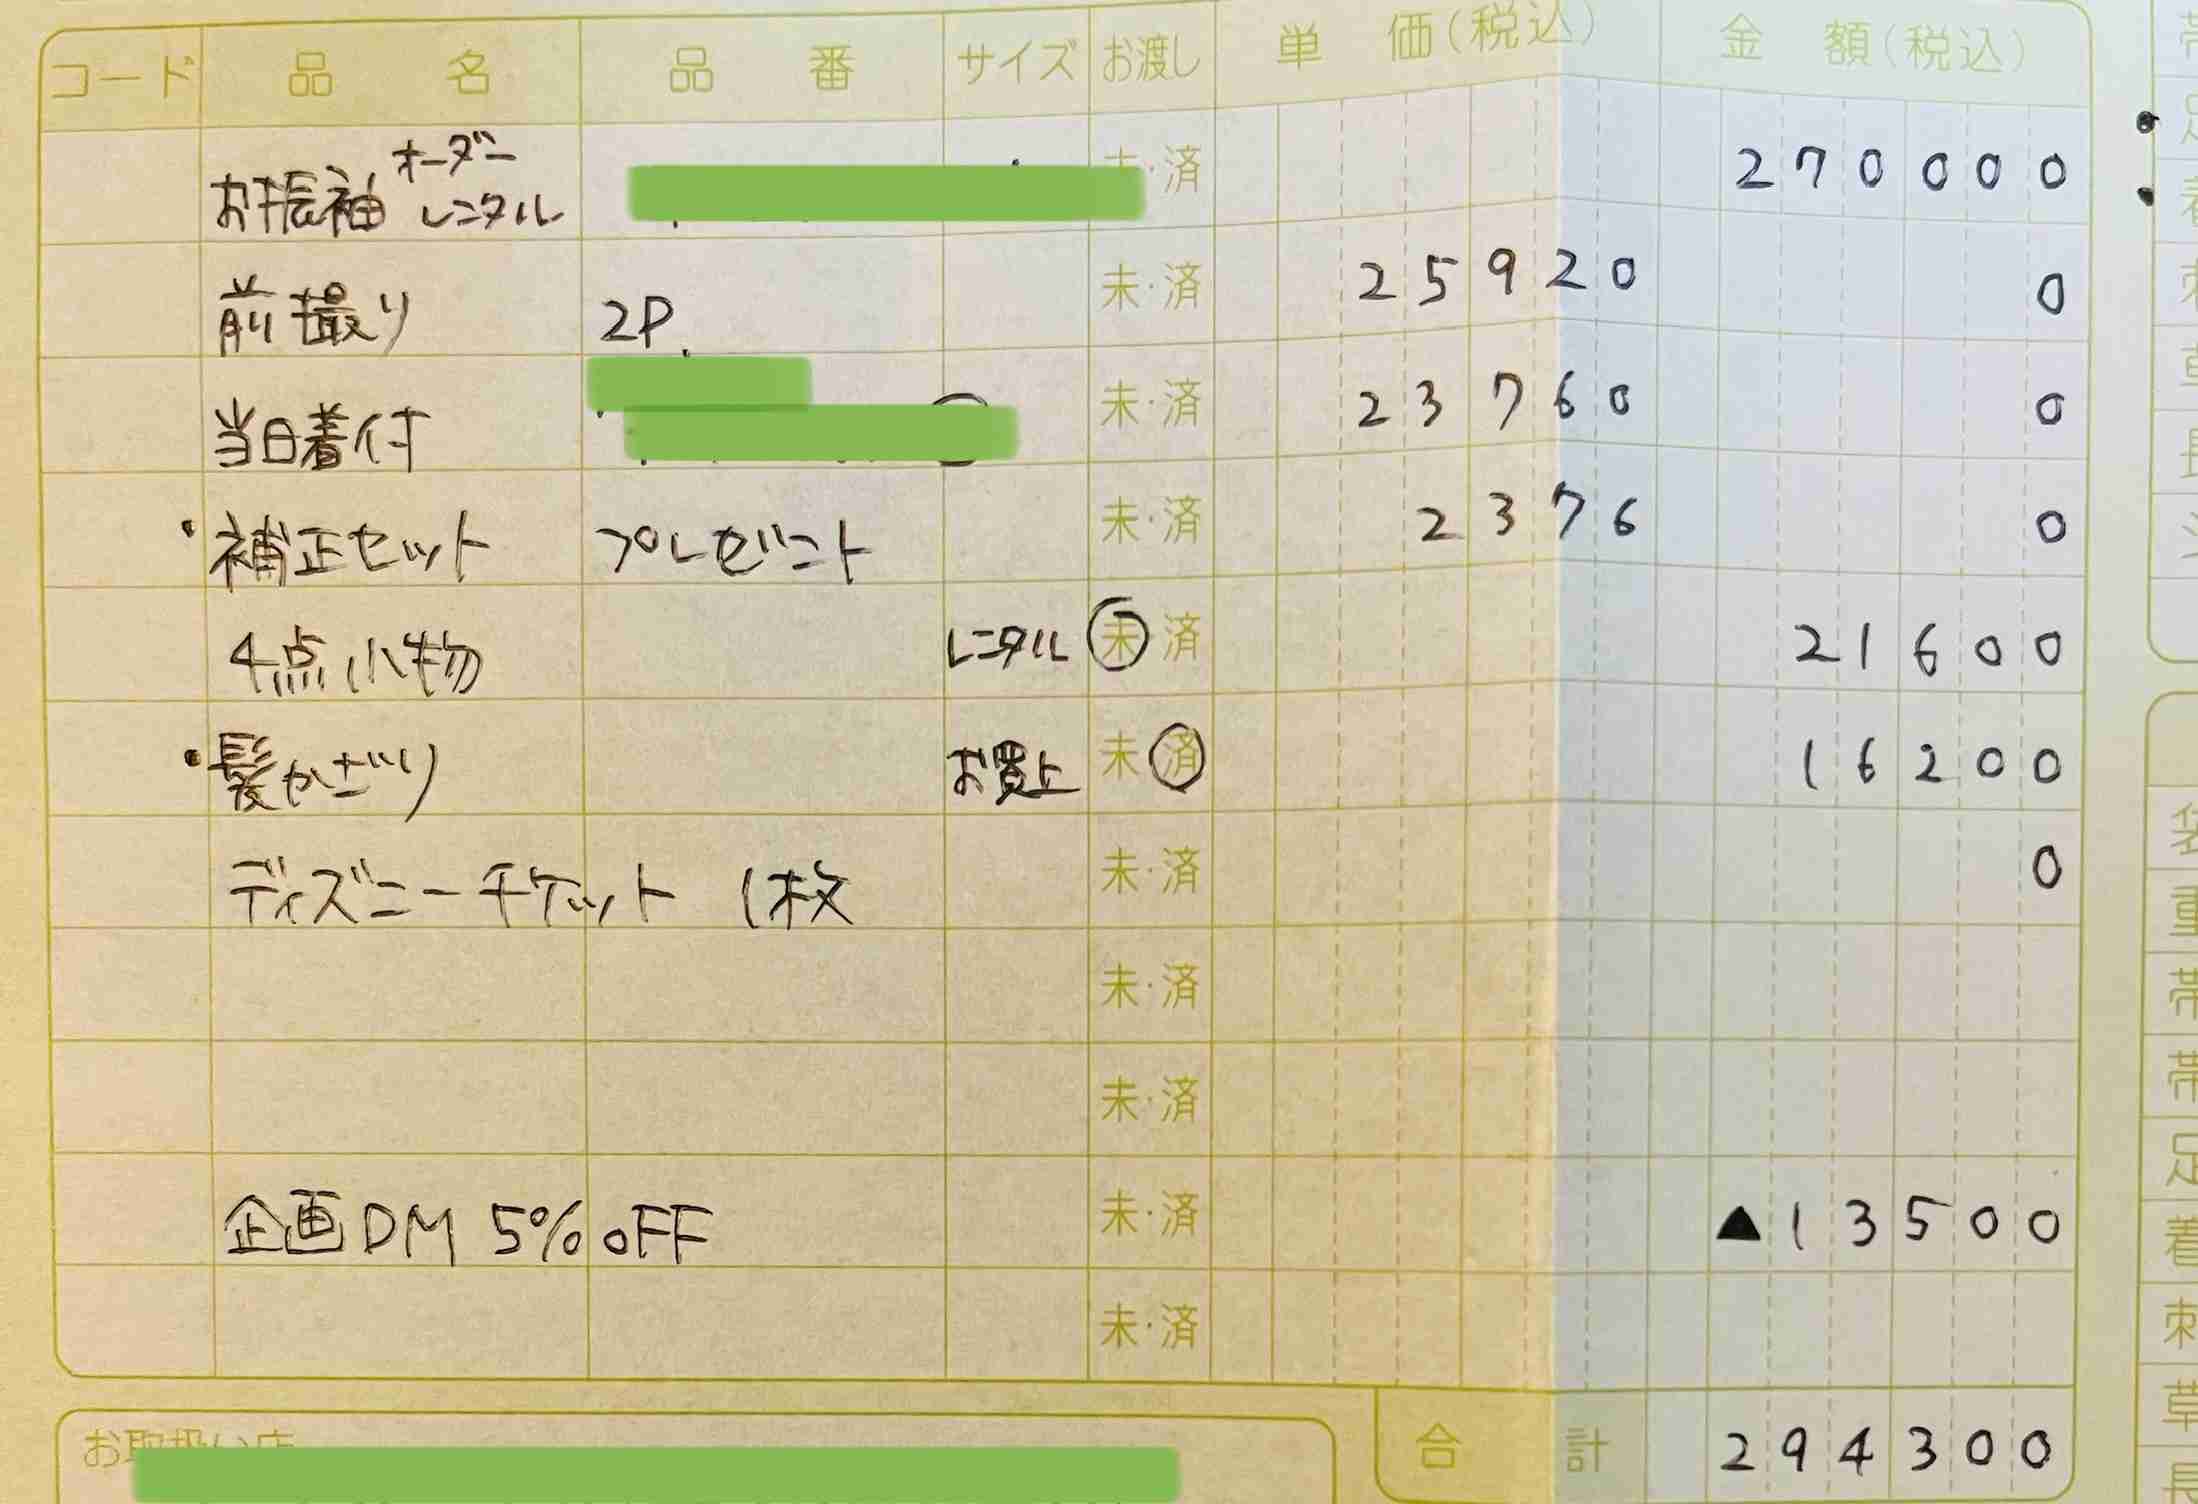 コード 品名 品番 サイズ お渡し 単価(税込) 金額(税込)
お振袖 オーダーレンタル 済 270000
前撮り 2P. 未・済 25920 0
当日着付 未・済 23760 0
・補正セット プレゼント 未・済 2376 0
4点小物 レンタル 未 済 21600
・髪かざり お買上 未 済 16200
ディズニーチケット 1枚 未・済 0
未・済
未・済
企画DM 5%OFF 未・済 ▲13500
未・済
合計 294300
お取扱い店